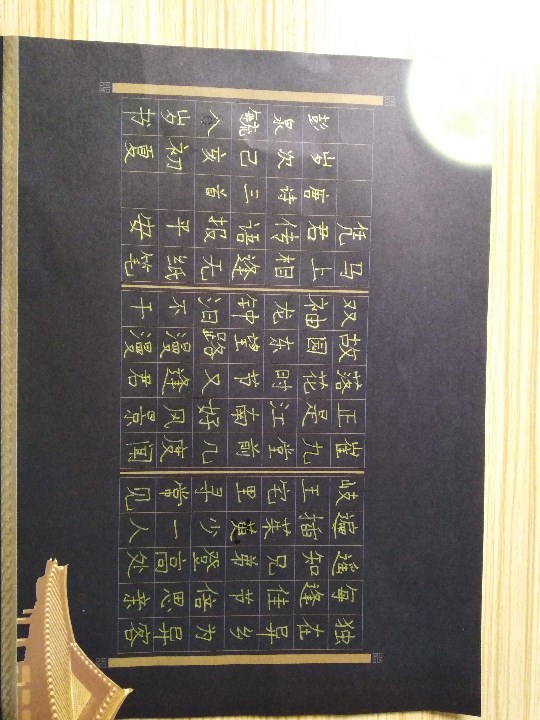 独在异乡为异客
每逢佳节倍思亲
遥知兄弟登高处
遍插茱萸少一人
岐王宅里寻常见
崔九堂前几度闻
正是江南好风景
落花时节又逢君
故园东望路漫漫
双袖龙钟泪不干
马上相逢无纸笔
凭君传语报平安
唐诗三首
岁次己亥初夏
彭泉毓八岁书